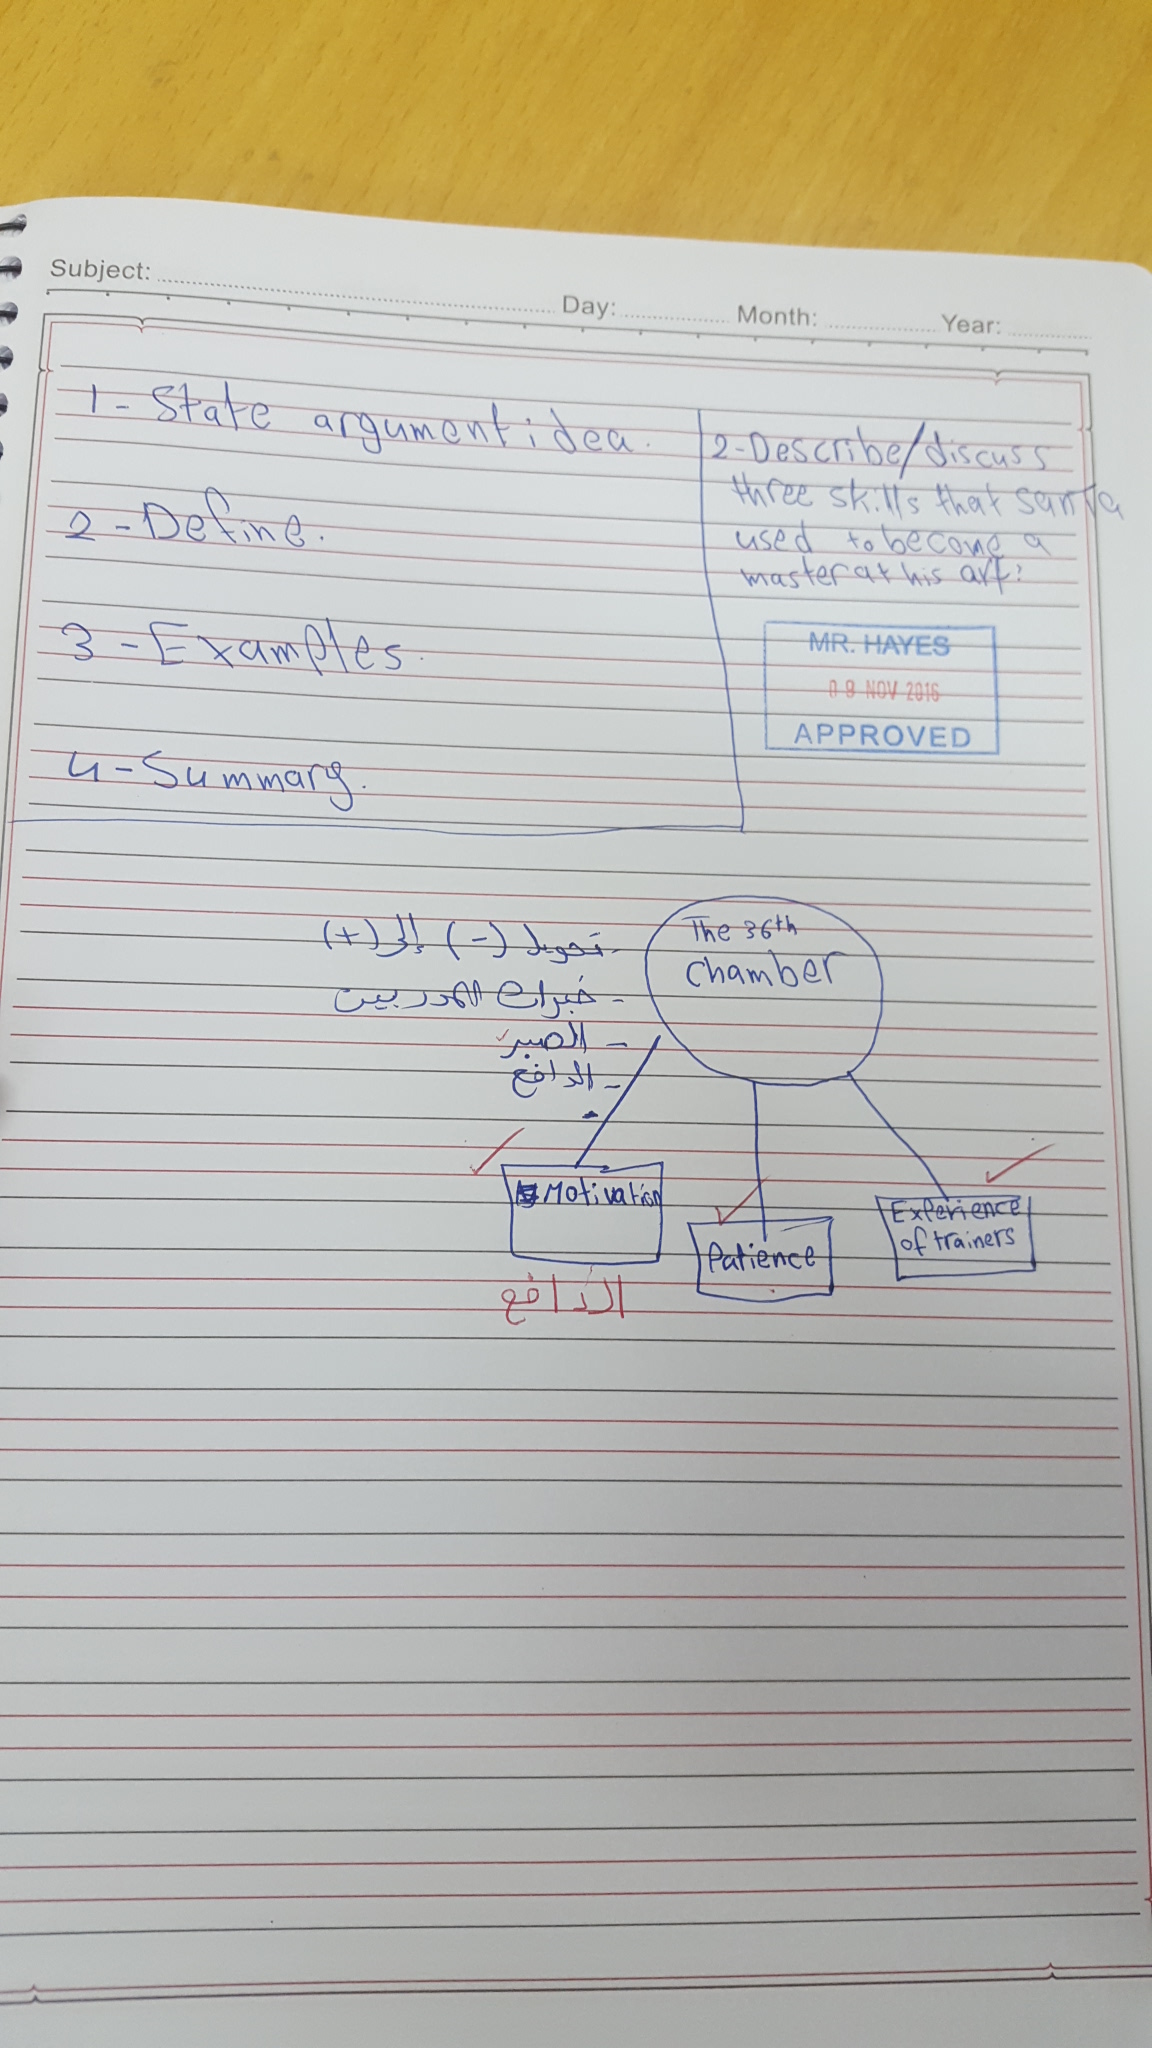 Subject: Day: Month: Year:
1 - State argument idea.
2 - Define.
3 - Examples.
4 - Summary.
2 - Describe/discuss
three skills that santa
used to become a
master at his art:
MR. HAYES
09 NOV 2016
APPROVED
The 36th
chamber
- تحويل (-) إلى (+)
- خبرات المدربين
- الصبر
- الدافع
Motivation
Patience
Experience
of trainers
الدافع